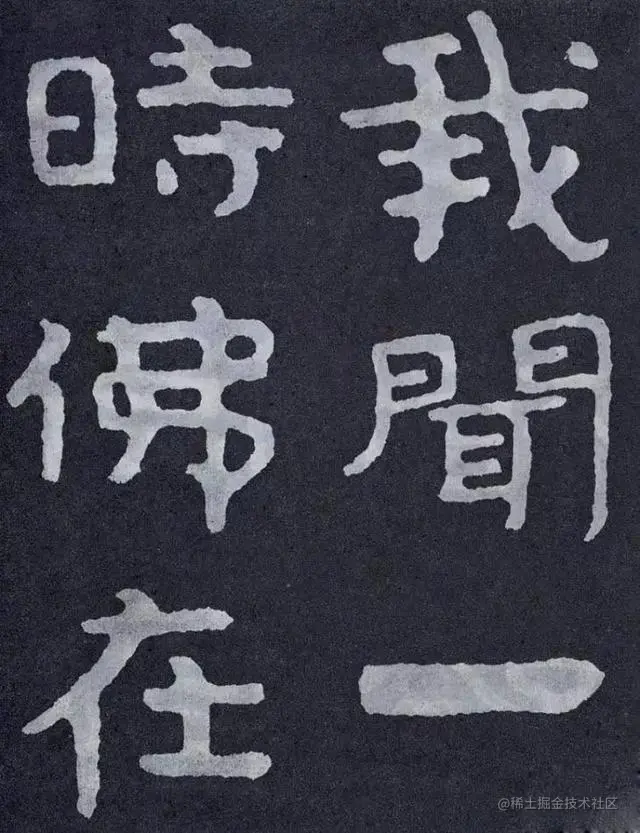 我聞一
時佛在
@稀土掘金技术社区